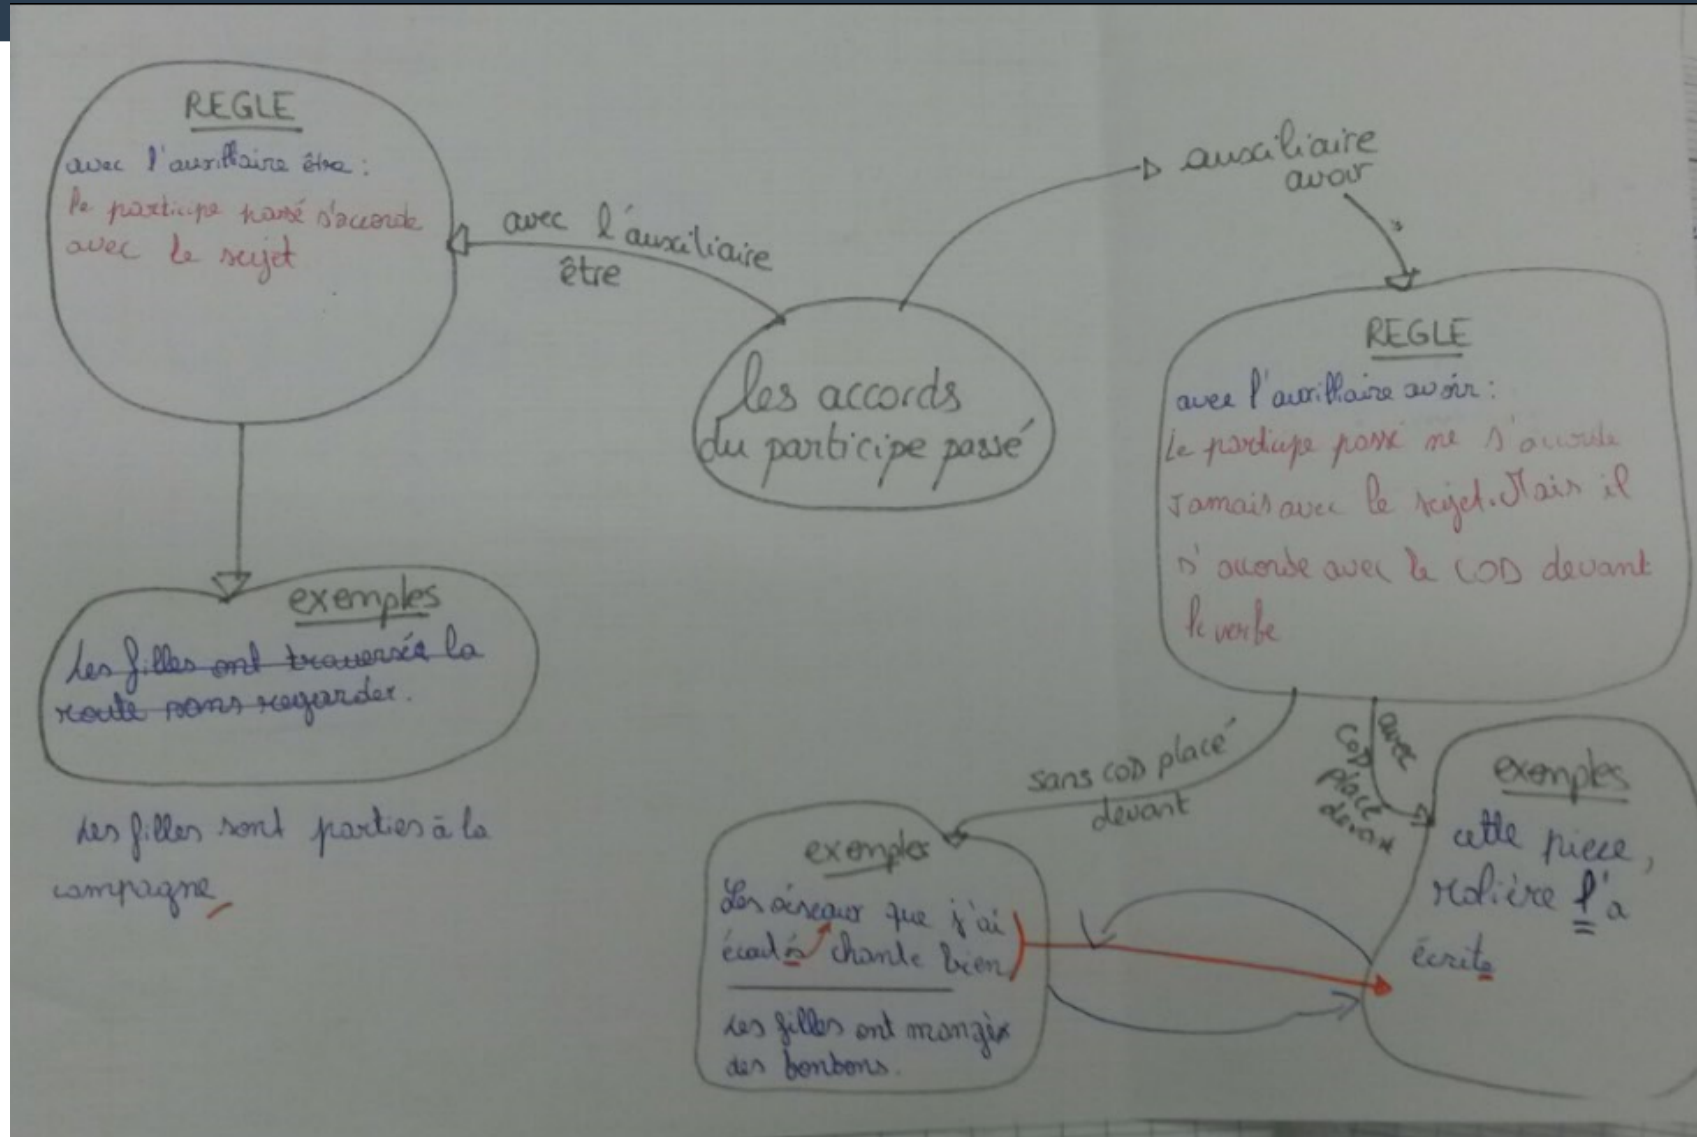 REGLE
avec l'auxillaire être :
le participe passé s'accorde
avec le sujet
avec l'auxiliaire
être
auxiliaire
avoir
les accords
du participe passé
REGLE
avec l'auxillaire avoir :
Le participe passé ne s'accorde
Jamais avec le sujet. Mais il
s'accorde avec le COD devant
le verbe
exemples
Les filles ont traversée la
route sans regarder.
Les filles sont parties à la
campagne
sans COD placé
devant
avec
COD
placé
devant
exemples
Les oiseaux que j'ai
écoutés chante bien
Les filles ont mangé
des bonbons.
exemples
cette piece,
Molière l'a
écrite